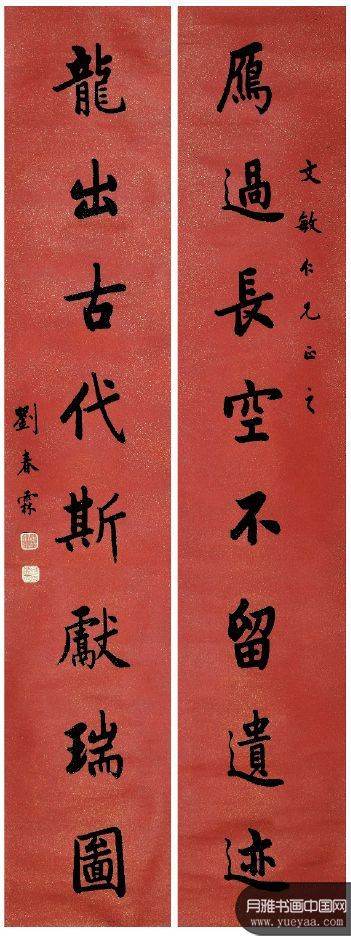 文敏仁兄正之
雁過長空不留遺迹
龍出古代斯獻瑞圖
劉春霖
月雅书画中国网
www.yueyaa.com